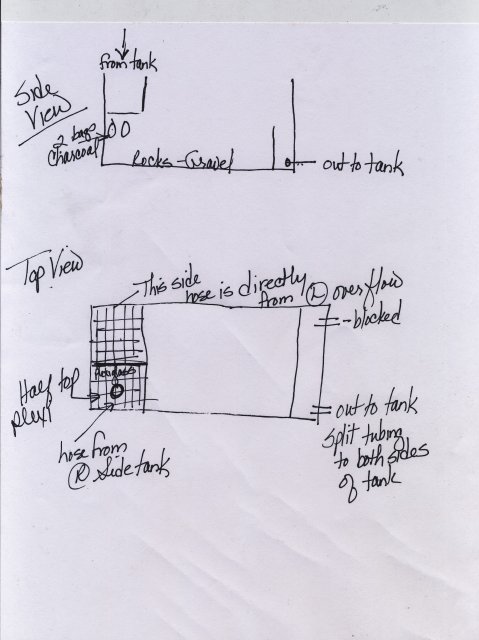 from tank
Side
View
2 bags
Charcoal
Rocks - Gravel
out to tank
Top View
This side
hose is directly
from (L) overflow
-blocked
Plexiglass
Half top
plexi
hose from
(R) side tank
out to tank
split tubing
to both sides
of tank